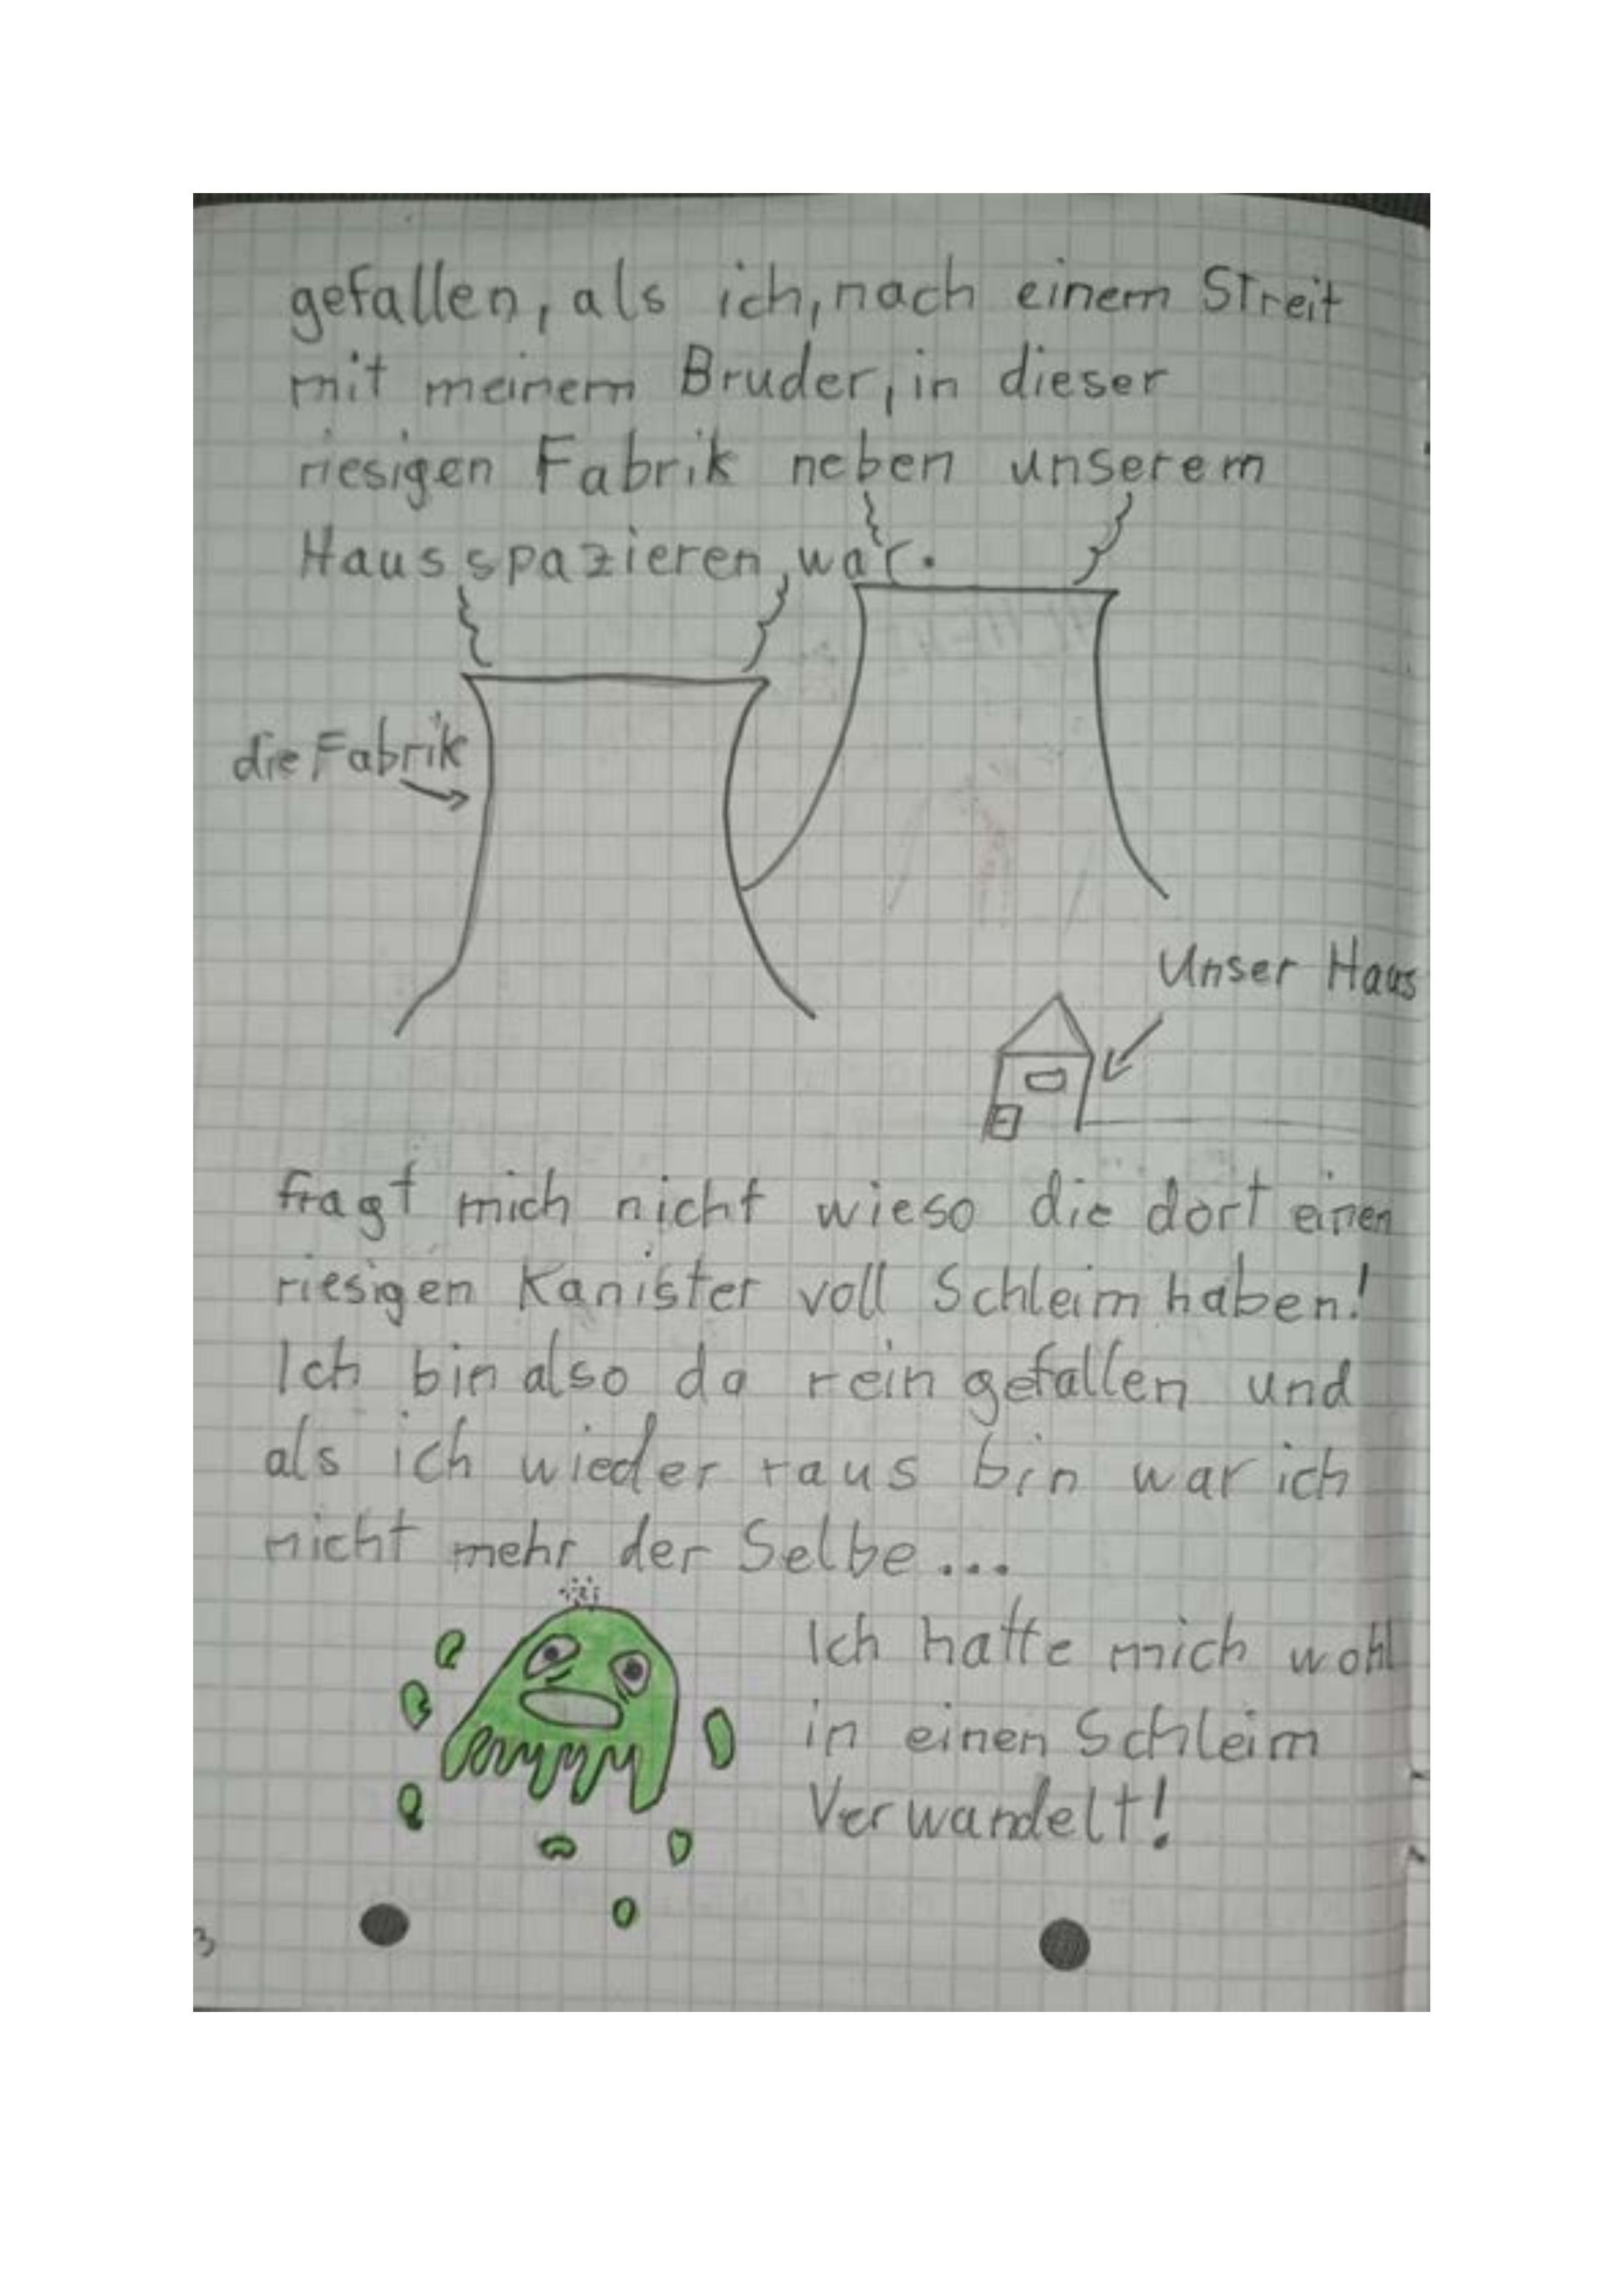 gefallen, als ich, nach einem Streit
mit meinem Bruder, in dieser
riesigen Fabrik neben unserem
Haus spazieren, war.
die Fabrik
Unser Haus
fragt mich nicht wieso die dort einen
riesigen Kanister voll Schleim haben!
Ich bin also da rein gefallen und
als ich wieder raus bin war ich
nicht mehr der Selbe...
Ich hatte mich wohl
in einen Schleim
Verwandelt!
3